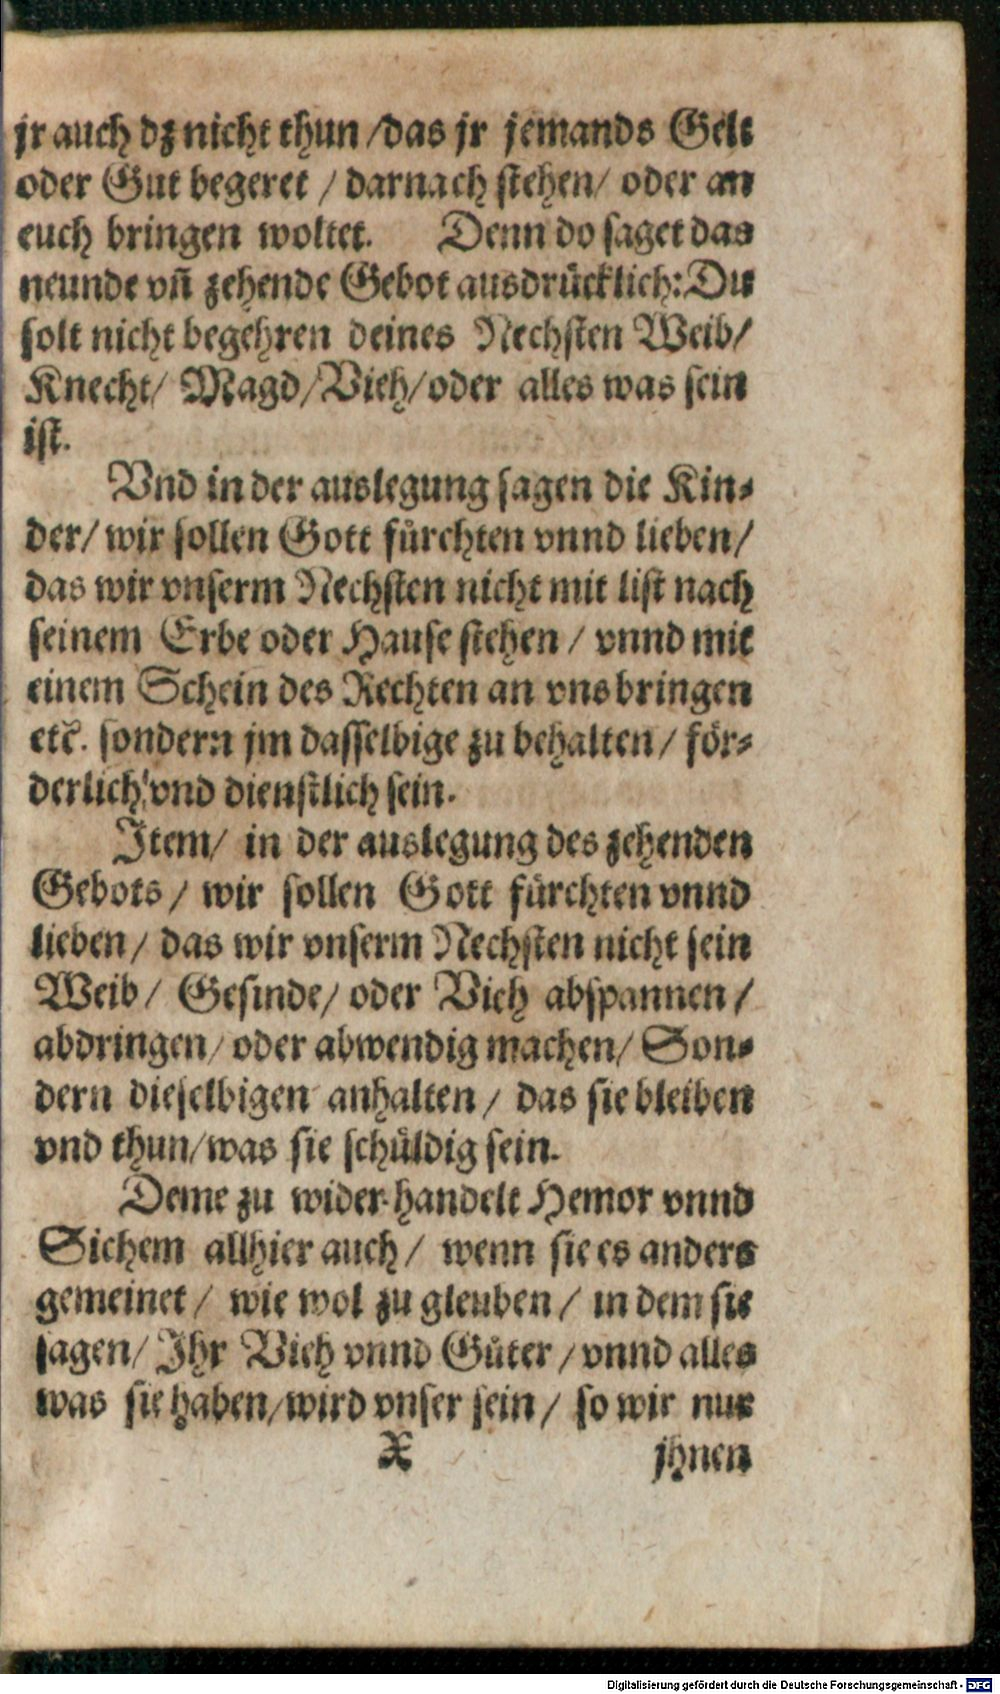 jr auch dz nicht thun /das jr jemands Gelt
oder Gut begeret / darnach stehen/ oder an
euch bringen woltet. Denn do saget das
neunde vn̄ zehende Gebot ausdruͤcklich: Du
solt nicht begehren deines Nechsten Weib/
Knecht/ Magd/Vieh/oder alles was sein
ist.
Vnd in der auslegung sagen die Kin⸗
der/ wir sollen Gott fuͤrchten vnnd lieben/
das wir vnserm Nechsten nicht mit list nach
seinem Erbe oder Hause stehen / vnnd mit
einem Schein des Rechten an vns bringen
etc̃. sondern jm dasselbige zu behalten / foͤr⸗
derlich vnd dienstlich sein.
Item/ in der auslegung des zehenden
Gebots / wir sollen Gott fuͤrchten vnnd
lieben/ das wir vnserm Nechsten nicht sein
Weib/ Gesinde/ oder Vieh abspannen/
abdringen/ oder abwendig machen/ Son⸗
dern dieselbigen anhalten / das sie bleiben
vnd thun/was sie schuͤldig sein.
Deme zu wider handelt Hemor vnnd
Sichem allhier auch/ wenn sie es anders
gemeinet / wie wol zu gleuben / in dem sie
sagen/ Ihr Vieh vnnd Guͤter /vnnd alles
was sie haben/wird vnser sein/ so wir nur
X jhnen
Digitalisierung gefördert durch die Deutsche Forschungsgemeinschaft - DFG